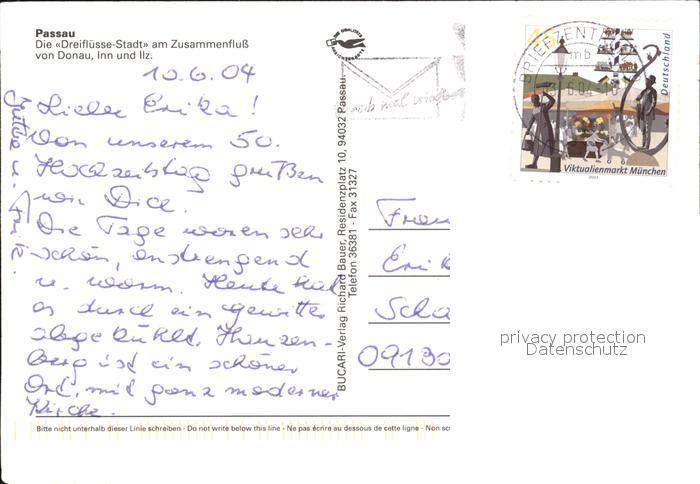 Passau
Die «Dreiflüsse-Stadt» am Zusammenfluß
von Donau, Inn und Ilz.
10.6.04
Liebe Erika!
Von unserem 50.
Hochzeitstag grüßen
wir Dich.
Die Tage waren sehr
schön, anstrengend
u. warm. Heute hat
es durch ein Gewitter
abgekühlt. Hauzen-
berg ist ein schöner
Ort, mit ganz moderner
Kirche.
Bitte nicht unterhalb dieser Linie schreiben - Do not write below this line - Ne pas écrire au dessous de cette ligne - Non sc
BUCARI-Verlag Richard Bauer, Residenzplatz 10, 94032 Passau
Telefon 36381 - Fax 31327
BRIEFZENTRUM
mb
45
Deutschland
Viktualienmarkt München
2003
Frau
Erik
Scha
09130
privacy protection
Datenschutz